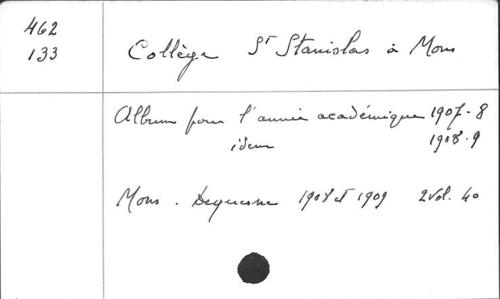 462
133
Collège St Stanislas à Mons
Album pour l'année académique 1907-8
idem 1908-9
Mons. Dequesne 1908 et 1909 2 vol. 4o